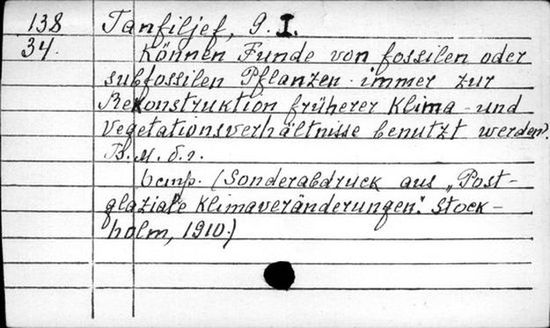 138 Tanfiljef, G. I.
34. Können Funde von fossilen oder
subfossilen Pflanzen immer zur
Rekonstruktion früherer Klima- und
Vegetationsverhältnisse benutzt werden?
стр. (Sonderabdruck aus „Post-
glaziale Klimaveränderungen". Stock-
holm, 1910.)